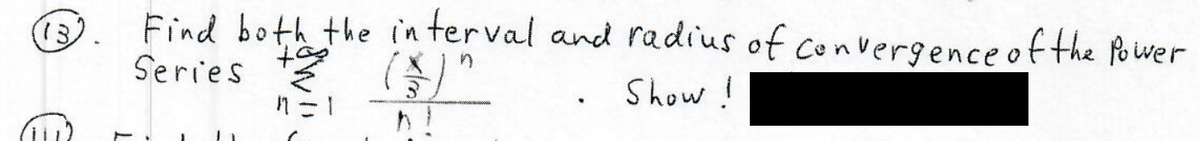 (13). Find both the interval and radius of convergence of the Power
Series +∞ Σ n=1 (x/3)^n / n! . Show!